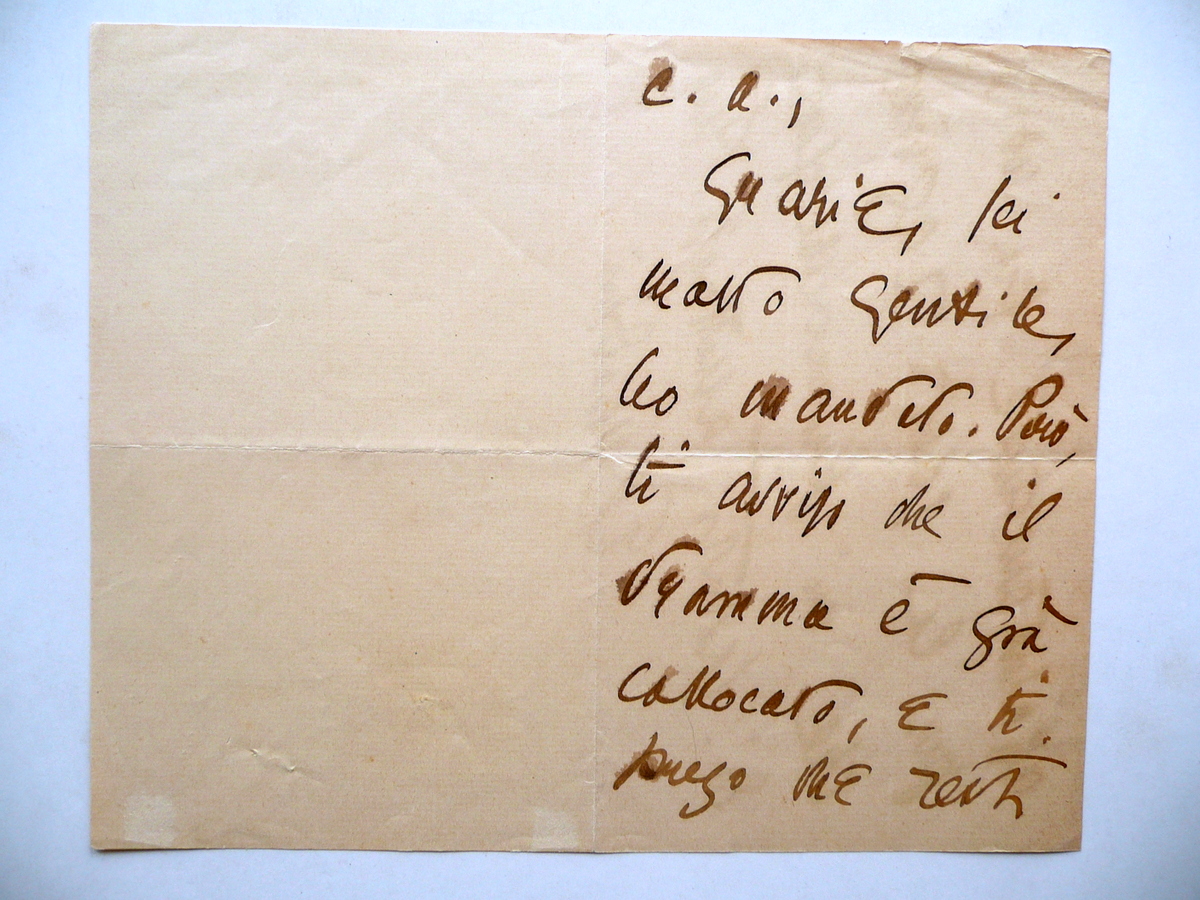 c. a.,
Grazie, sei
molto gentile,
ho mandato. Però,
ti avviso che il
dramma è già
collocato, e ti
prego che resti